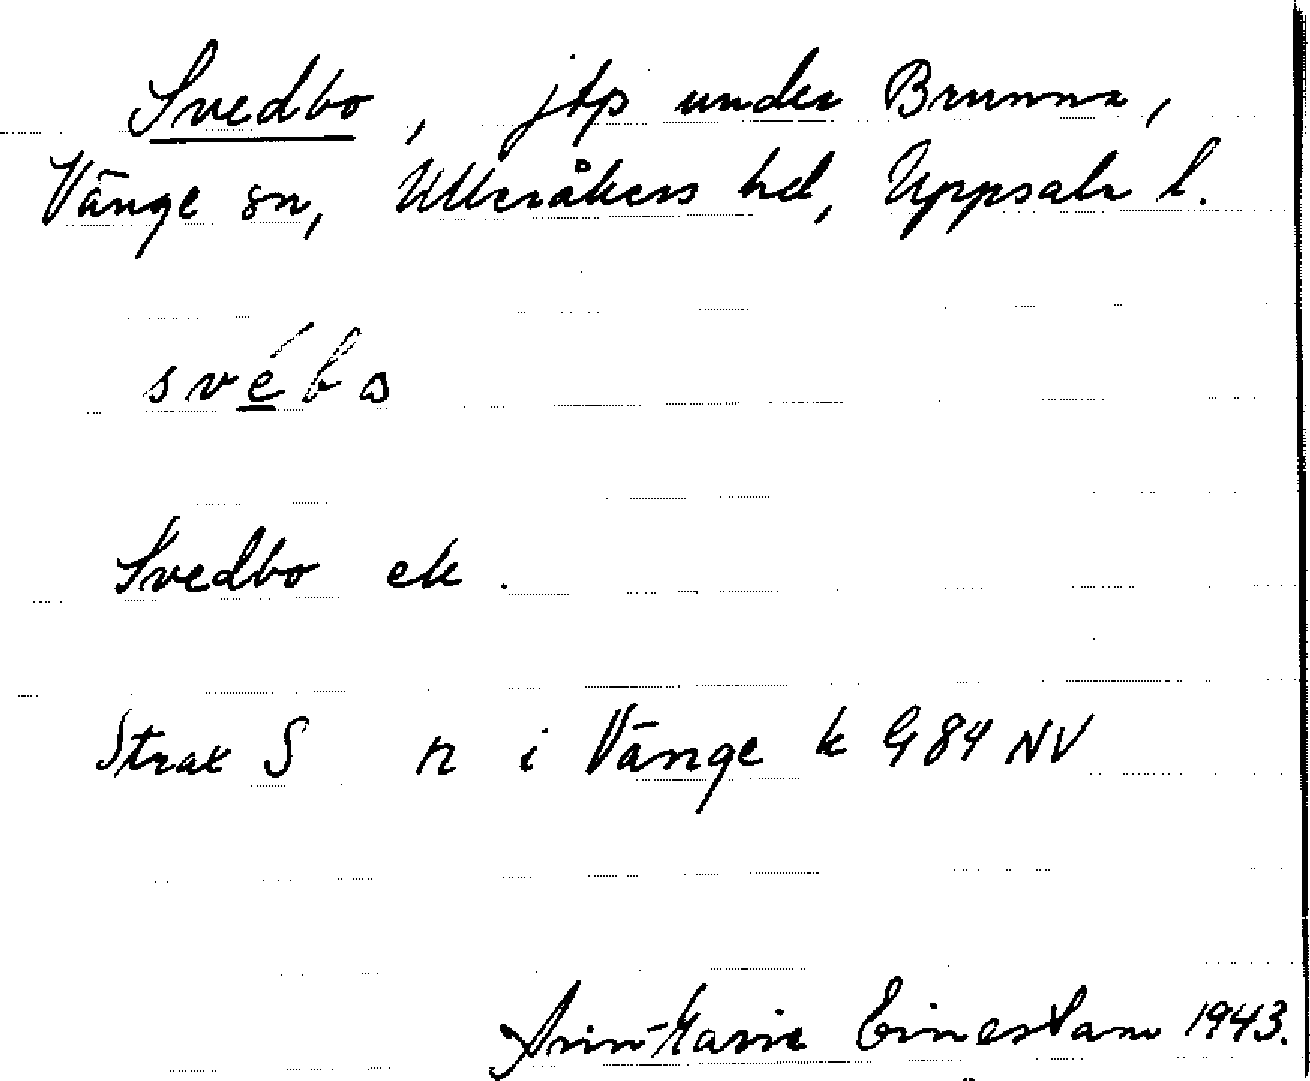 Svedbo, jtp under Brunna,
Vänge sn, Ulleråkers hd, Uppsala l.
svébo
Svedbo ek.
Strax S n i Vänge k G 84 NV
Ann-Marie 1943.